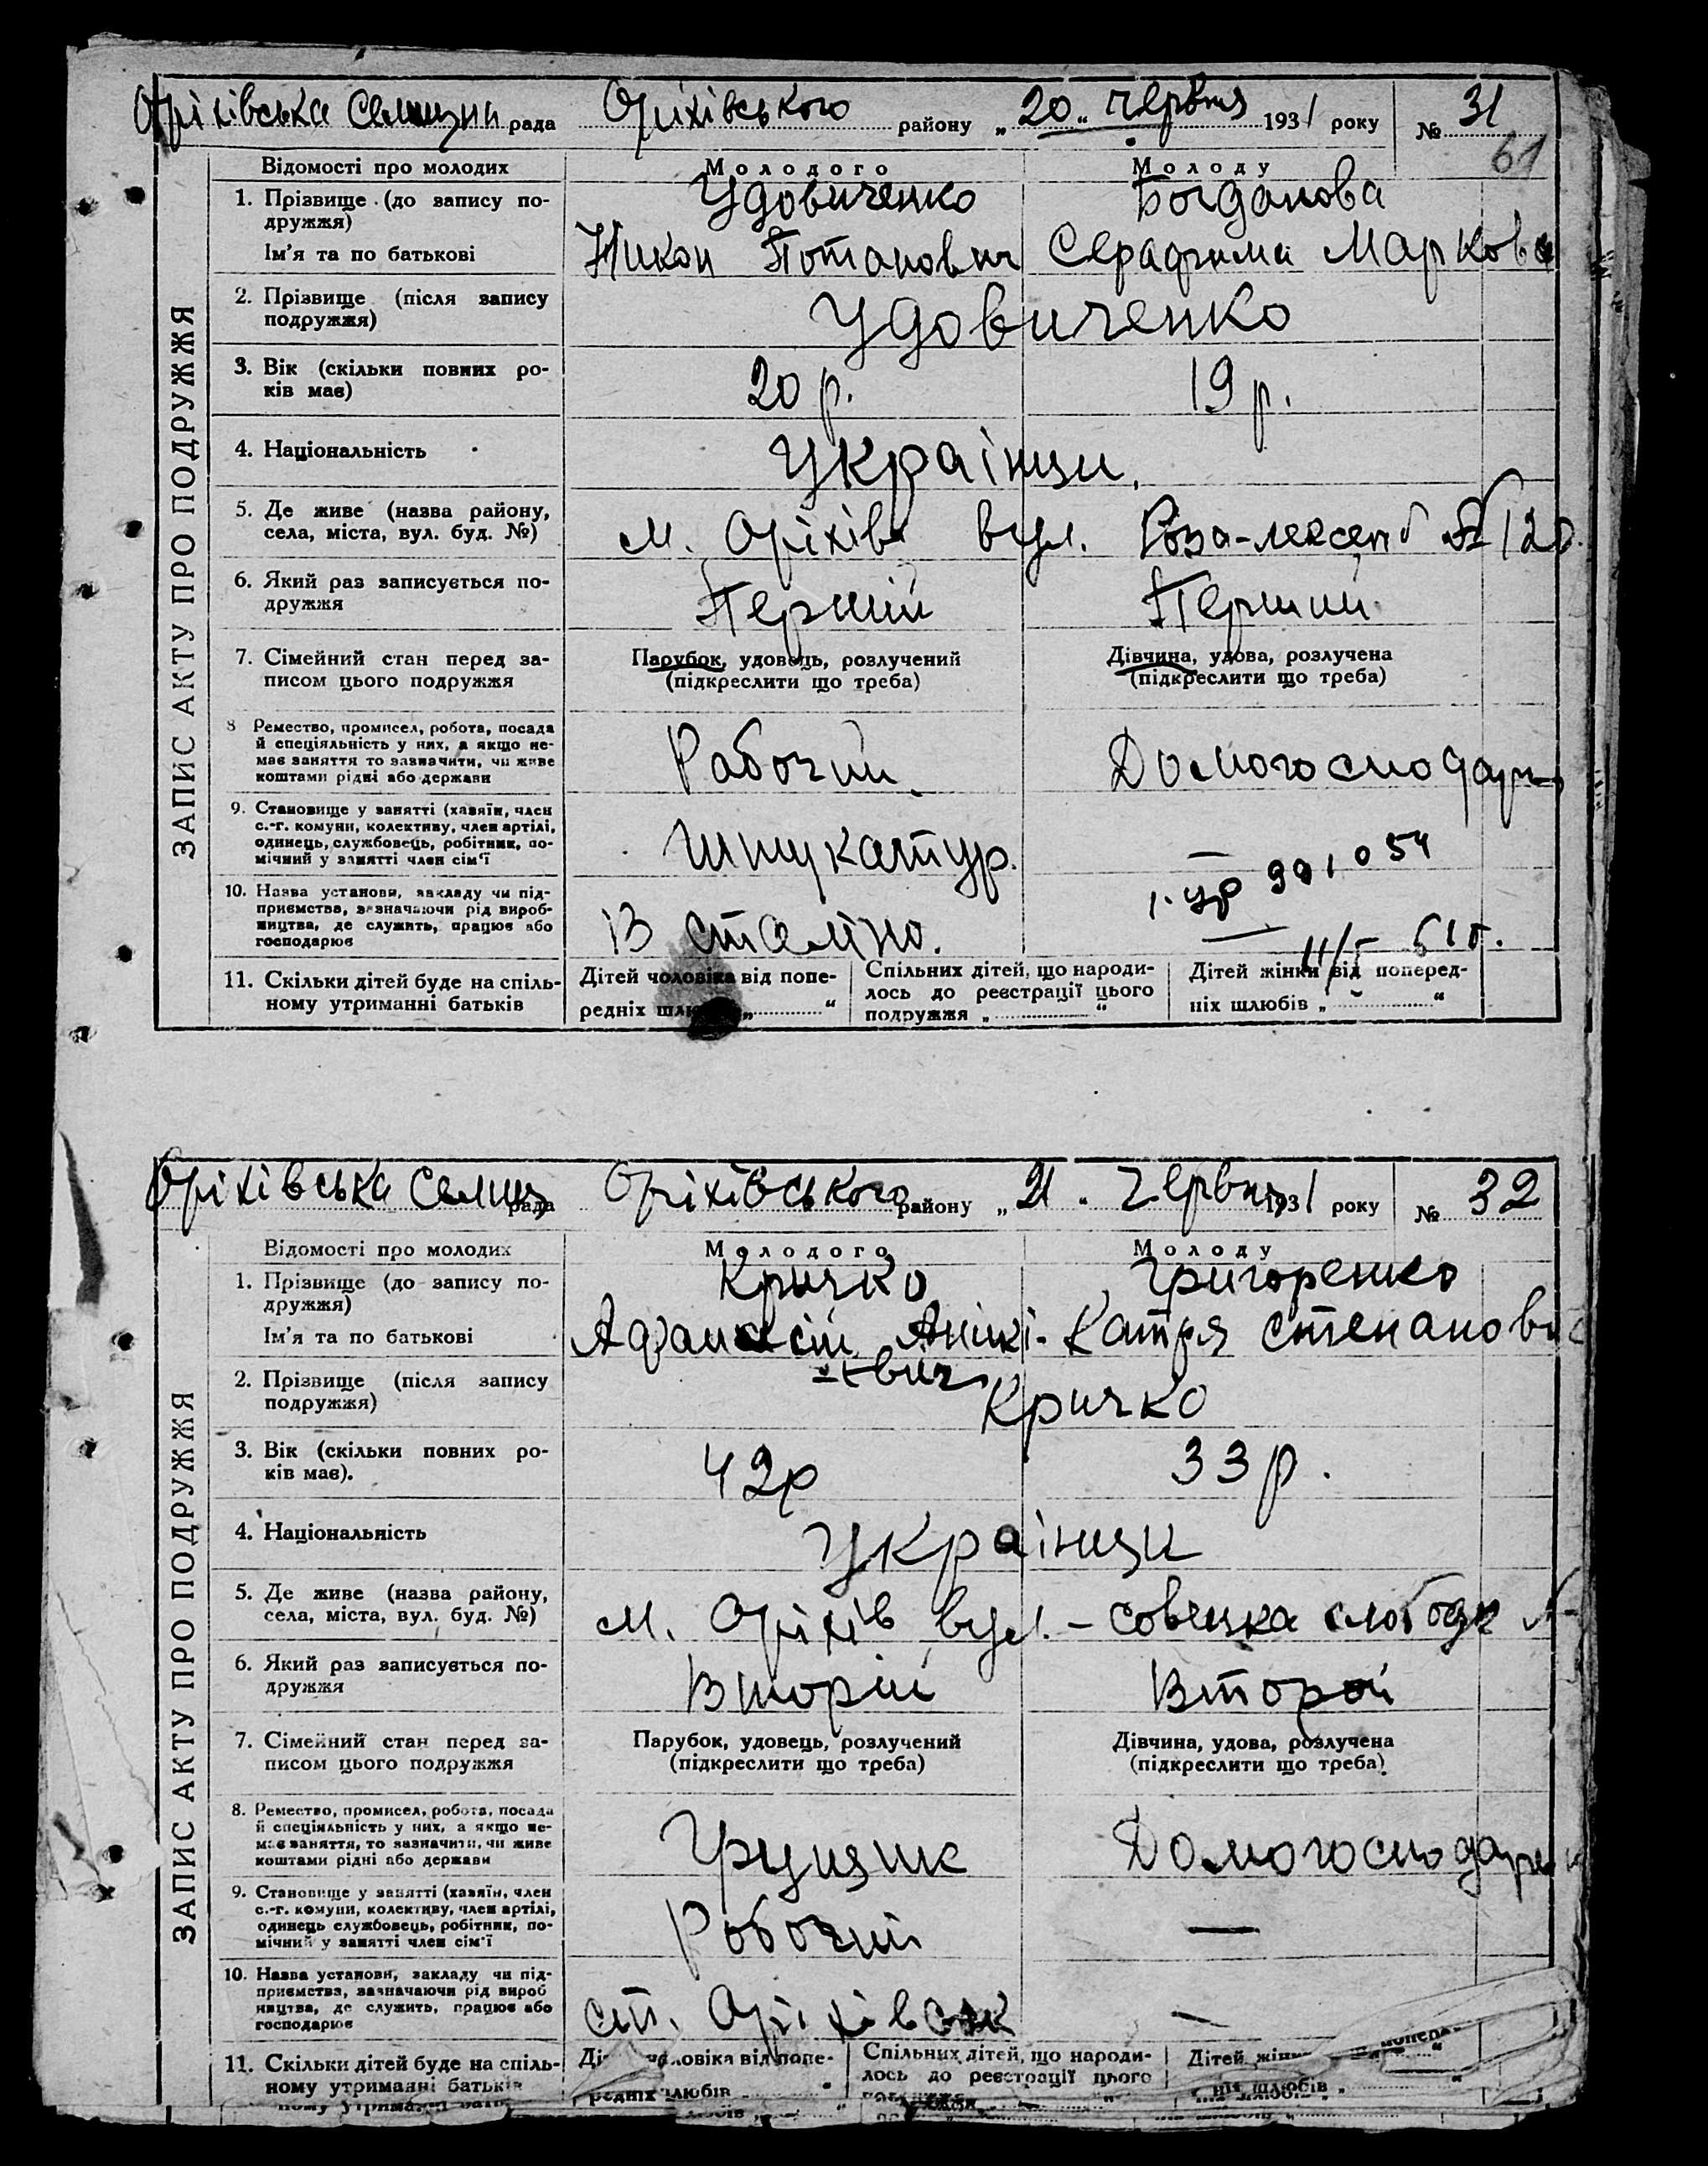 Оріхівська Селищн рада Оріхівського району „20„ червня 1931 року № 31
61
ЗАПИС АКТУ ПРО ПОДРУЖЖЯ
Відомості про молодих Молодого Молоду
1. Прізвище (до запису по-
дружжя) Удовиченко Богданова
Ім'я та по батькові Никон Потапович Серафима Маркова
2. Прізвище (після запису
подружжя) Удовиченко
3. Вік (скільки повних ро-
ків має) 20 р. 19 р.
4. Національність Українци.
5. Де живе (назва району,
села, міста, вул. буд. №) м. Оріхів вул. Роза- № 120.
6. Який раз записується по-
дружжя Перший Перший
7. Сімейний стан перед за- Парубок, удовець, розлучений Дівчина, удова, розлучена
писом цього подружжя (підкреслити що треба) (підкреслити що треба)
8 Ремество, промисел, робота, посада
й спеціяльність у них, а якщо не-
має заняття то зазначити, чи живе
коштами рідні або держави Рабочий Домогосподарк
9. Становище у занятті (хазяїн, член
с.-г. комуни, колективу, член артілі,
одинець, службовець, робітник, по-
мічний у занятті член сім'ї Штукатур. —
10. Назва установи, закладу чи під-
приємства, зазначаючи рід вироб-
ництва, де служить, працює або
господарює Із сталіно. —
11/5 61г.
11. Скільки дітей буде на спіль- Дітей чоловіка від попе- Спільних дітей, що народи- Дітей жінки від поперед-
ному утриманні батьків редніх шлюбів „ “ лось до реєстрації цього ніх шлюбів „ “
подружжя „ “
Оріхівська Селищ рада Оріхівського району „21„ Червня 1931 року № 32
ЗАПИС АКТУ ПРО ПОДРУЖЖЯ
Відомості про молодих Молодого Молоду
1. Прізвище (до запису по-
дружжя) Кричко Григоренко
Ім'я та по батькові Афанасій Аникі- Катря Степановна
євич
2. Прізвище (після запису
подружжя) Кричко
3. Вік (скільки повних ро-
ків має). 42р 33 р.
4. Національність Українци
5. Де живе (назва району,
села, міста, вул. буд. №) м. Оріхів вул. – совецка слобода №
6. Який раз записується по-
дружжя Вторій Второй
7. Сімейний стан перед за- Парубок, удовець, розлучений Дівчина, удова, розлучена
писом цього подружжя (підкреслити що треба) (підкреслити що треба)
8. Ремество, промисел, робота, посада
й спеціяльність у них, а якщо не-
має заняття, то зазначити, чи живе
коштами рідні або держави Грущик Домогосподарк
9. Становище у занятті (хазяїн, член
с.-г. комуни, колективу, член артілі,
одинець службовець, робітник, по-
мічний у занятті член сім'ї Робочий —
10. Назва установи, закладу чи під-
приємства, зазначаючи рід вироб
ництва, де служить, працює або
господарює ст. Оріхівськ —
11. Скільки дітей буде на спіль- Дітей чоловіка від попе- Спільних дітей, що народи- Дітей жінки
ному утриманні батьків редніх шлюбів „ “ лось до реєстрації цього ніх шлюбів „ “